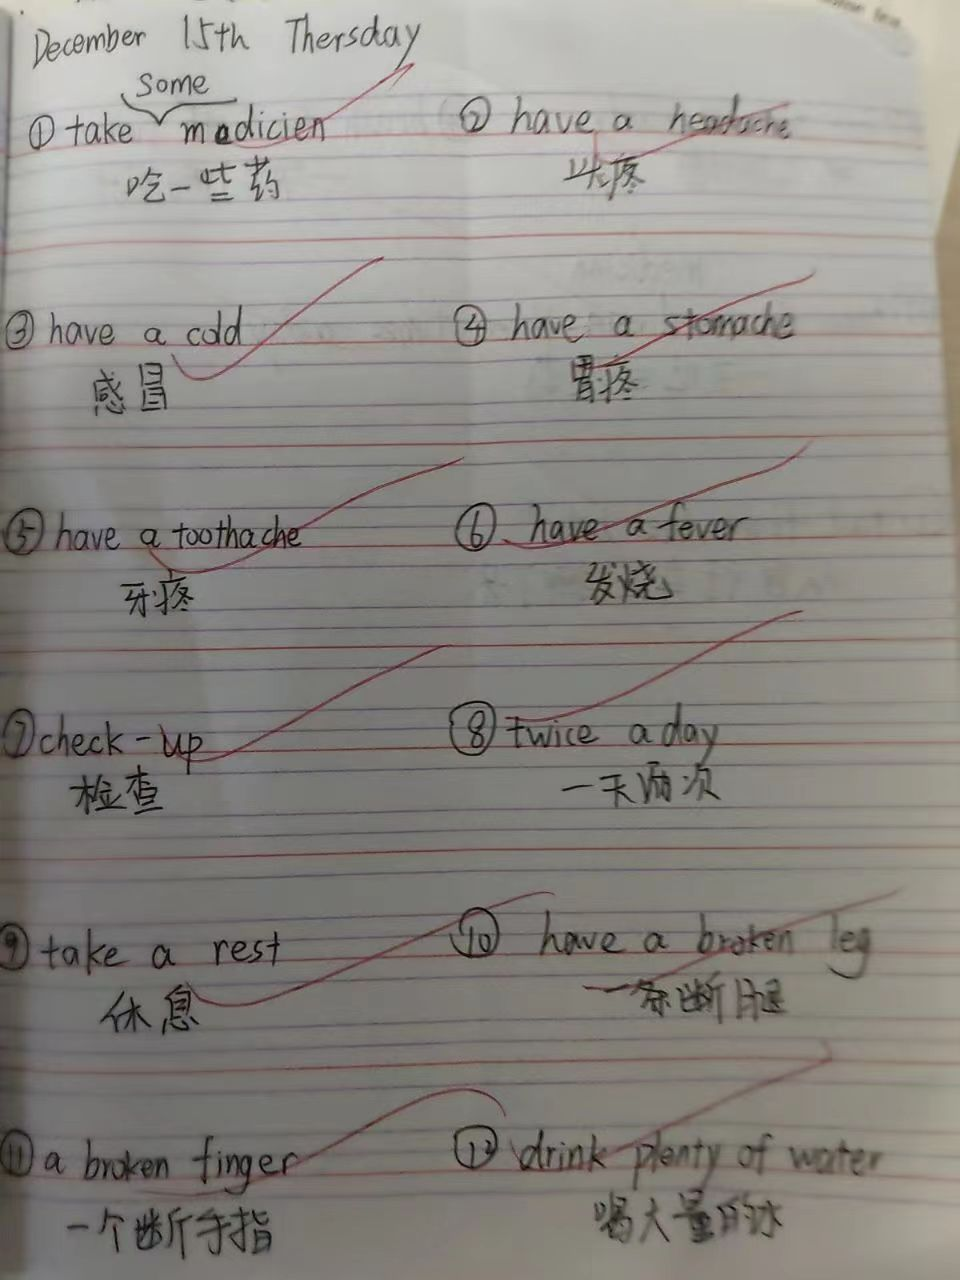 December 15th Thersday
some
① take madicien
② have a headache
吃一些药
头疼
③ have a cold
④ have a stomache
感冒
胃疼
⑤ have a toothache
⑥ have a fever
牙疼
发烧
⑦ check-up
⑧ twice a day
检查
一天两次
⑨ take a rest
⑩ have a broken leg
休息
一条断腿
⑪ a broken finger
⑫ drink plenty of water
一个断手指
喝大量的水